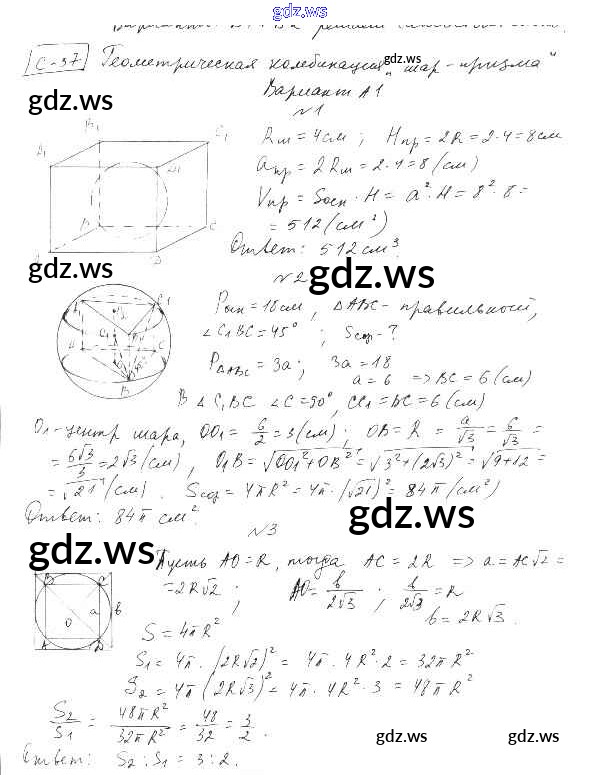 gdz.ws
С-37 Геометрическая комбинация „шар-призма"
Вариант А1
№1
gdz.ws
Rш = 4см ; Hпр = 2R = 2·4 = 8см
aпр = 2Rш = 2·4 = 8 (см)
Vпр = Sосн · H = a²·H = 8²·8 =
= 512 (см³)
Ответ: 512 см³.
B₁ C₁
A₁ D₁
B C
A D
gdz.ws
№2
gdz.ws
Pосн = 18см, ΔABC - правильной,
∠C₁BC = 45° ; Sсф - ?
PΔABC = 3a ; 3a = 18
a = 6 => BC = 6 (см)
В ∠C₁BC ∠C = 90°, CC₁ = BC = 6 (см)
O₁ - центр шара, OO₁ = 6/2 = 3 (см) ; OB = R = a/√3 = 6/√3 =
= 6√3/3 = 2√3 (см), O₁B = √OO₁² + OB² = √3² + (2√3)² = √9+12 =
= √21 (см). Sсф = 4πR² = 4π·(√21)² = 84π (см²)
Ответ: 84π см².
gdz.ws
№3
gdz.ws
Пусть AO = R, тогда AC = 2R => a = AC√2 =
= 2R√2 ; AO = b/2√3 ; b/2√3 = R
b = 2R√3.
B C
a b
O
A D
S = 4πR²
S₁ = 4π·(2R√2)² = 4π·4R²·2 = 32πR²
S₂ = 4π(2R√3)² = 4π·4R²·3 = 48πR²
S₂/S₁ = 48πR²/32πR² = 48/32 = 3/2.
Ответ: S₂ : S₁ = 3 : 2.
gdz.ws
gdz.ws